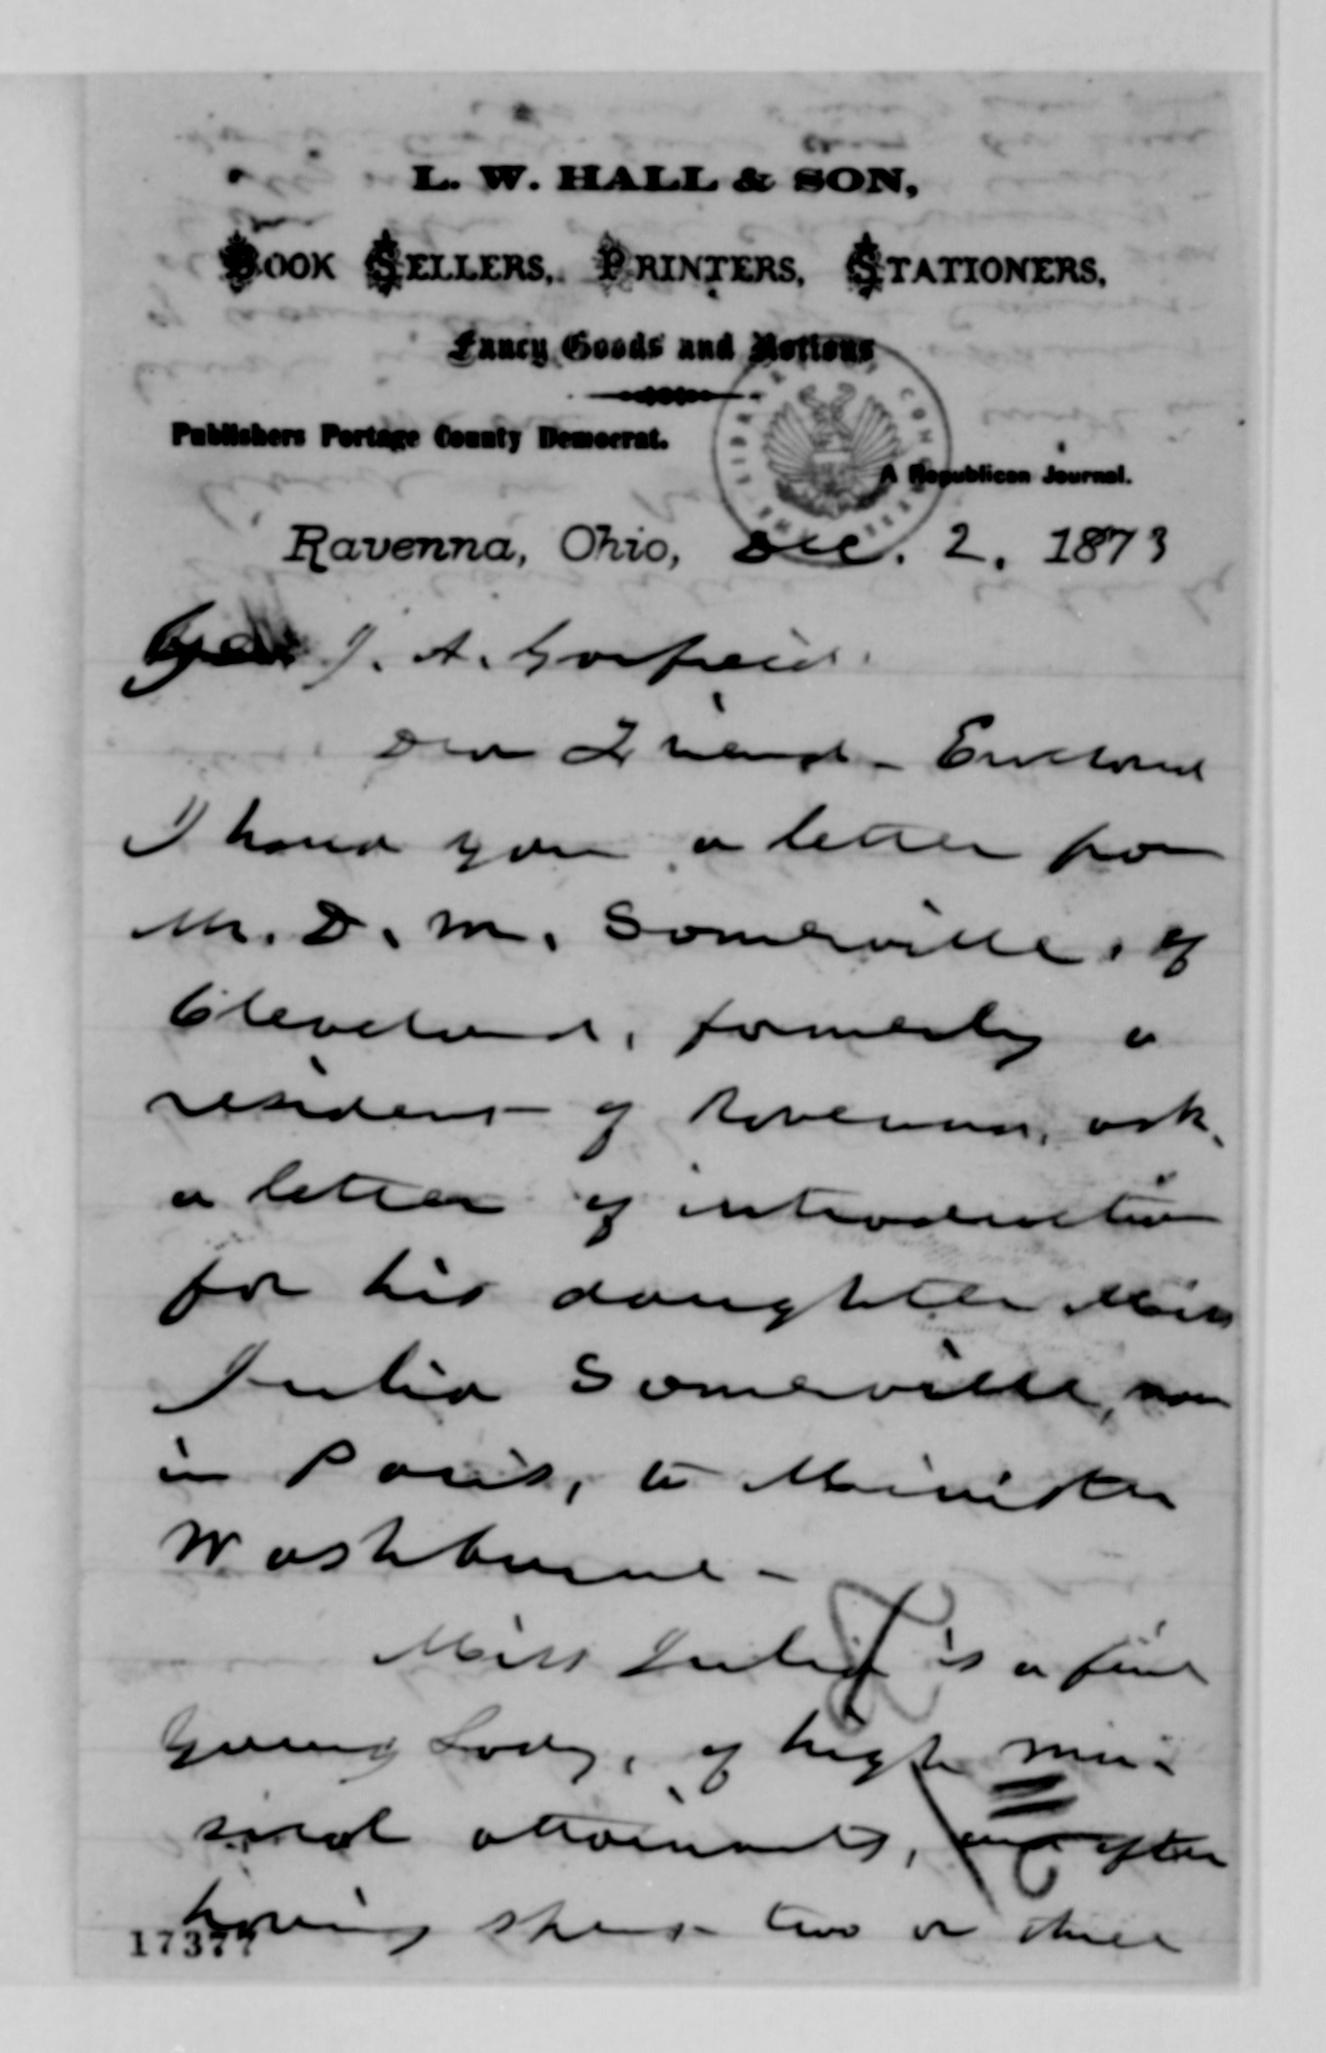 L. W. HALL & SON,
BOOK SELLERS, PRINTERS, STATIONERS,
Fancy Goods and Notions,
Publishers Portage County Democrat.
A Republican Journal.
Ravenna, Ohio, Dec. 2. 1873
Gen J. A. Garfield.
Dear Friend - Enclosed
I hand you a letter from
Mr. D. M. Somerville, of
Cleveland, formerly a
resident of Ravenna, ask.
a letter of introduction
for his daughter Miss
Julia Somerville, now
in Paris, to Minister
Washburne -
Miss Julia is a fine
young Lady, of high mu-
sical attainments, after
having spent two or three
17377